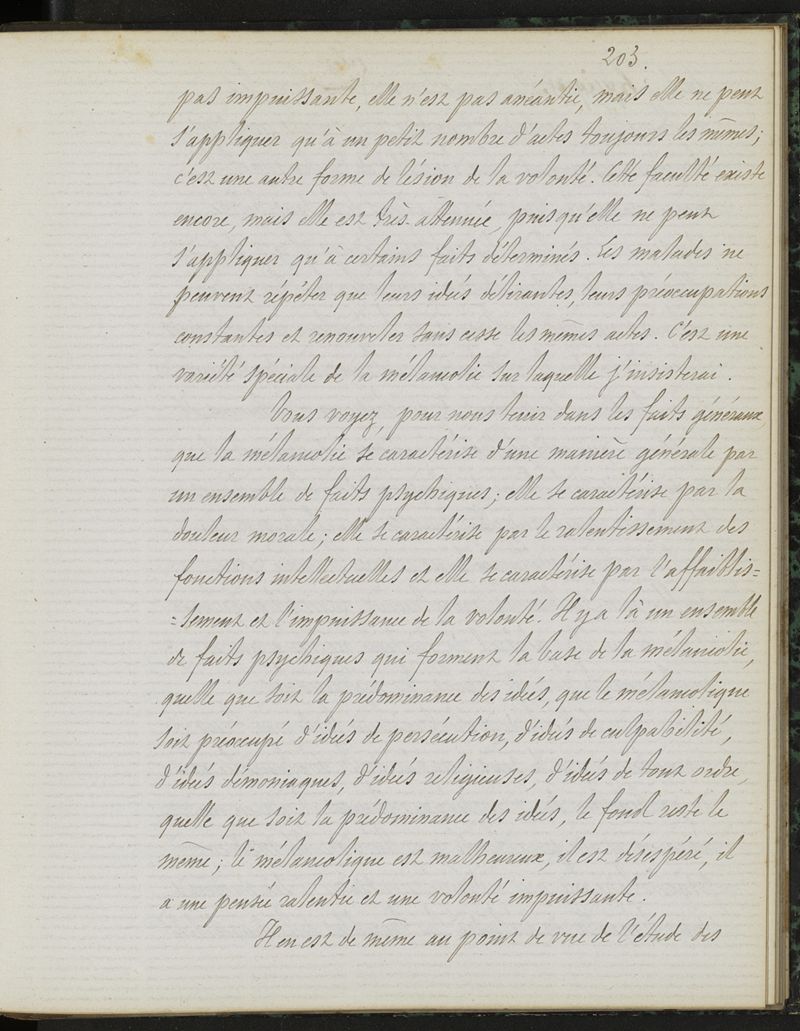 203.
pas impuissante, elle n'est pas anéantie, mais elle ne peut
s'appliquer qu'à un petit nombre d'actes toujours les mêmes;
c'est une autre forme de lésion de la volonté. Cette faculté existe
encore, mais elle est très-atténuée, puisqu'elle ne peut
s'appliquer qu'à certains faits déterminés. Les malades ne
peuvent répéter que leurs idées délirantes, leurs préoccupations
constantes et renouveler sans cesse les mêmes actes. C'est une
variété spéciale de la mélancolie sur laquelle j'insisterai.
Vous voyez, pour nous tenir dans les faits généraux,
que la mélancolie se caractérise d'une manière générale par
un ensemble de faits psychiques; elle se caractérise par la
douleur morale; elle se caractérise par le ralentissement des
fonctions intellectuelles et elle se caractérise par l'affaiblis=
=sement et l'impuissance de la volonté. Il y a là un ensemble
de faits psychiques qui forment la base de la mélancolie,
quelle que soit la prédominance des idées, que le mélancolique
soit préoccupé d'idées de persécution, d'idées de culpabilité,
d'idées démoniaques, d'idées religieuses, d'idées de tout ordre,
quelle que soit la prédominance des idées, le fond reste le
même; le mélancolique est malheureux, il est désespéré, il
a une pensée ralentie et une volonté impuissante.
Il en est de même au point de vue de l'étude des